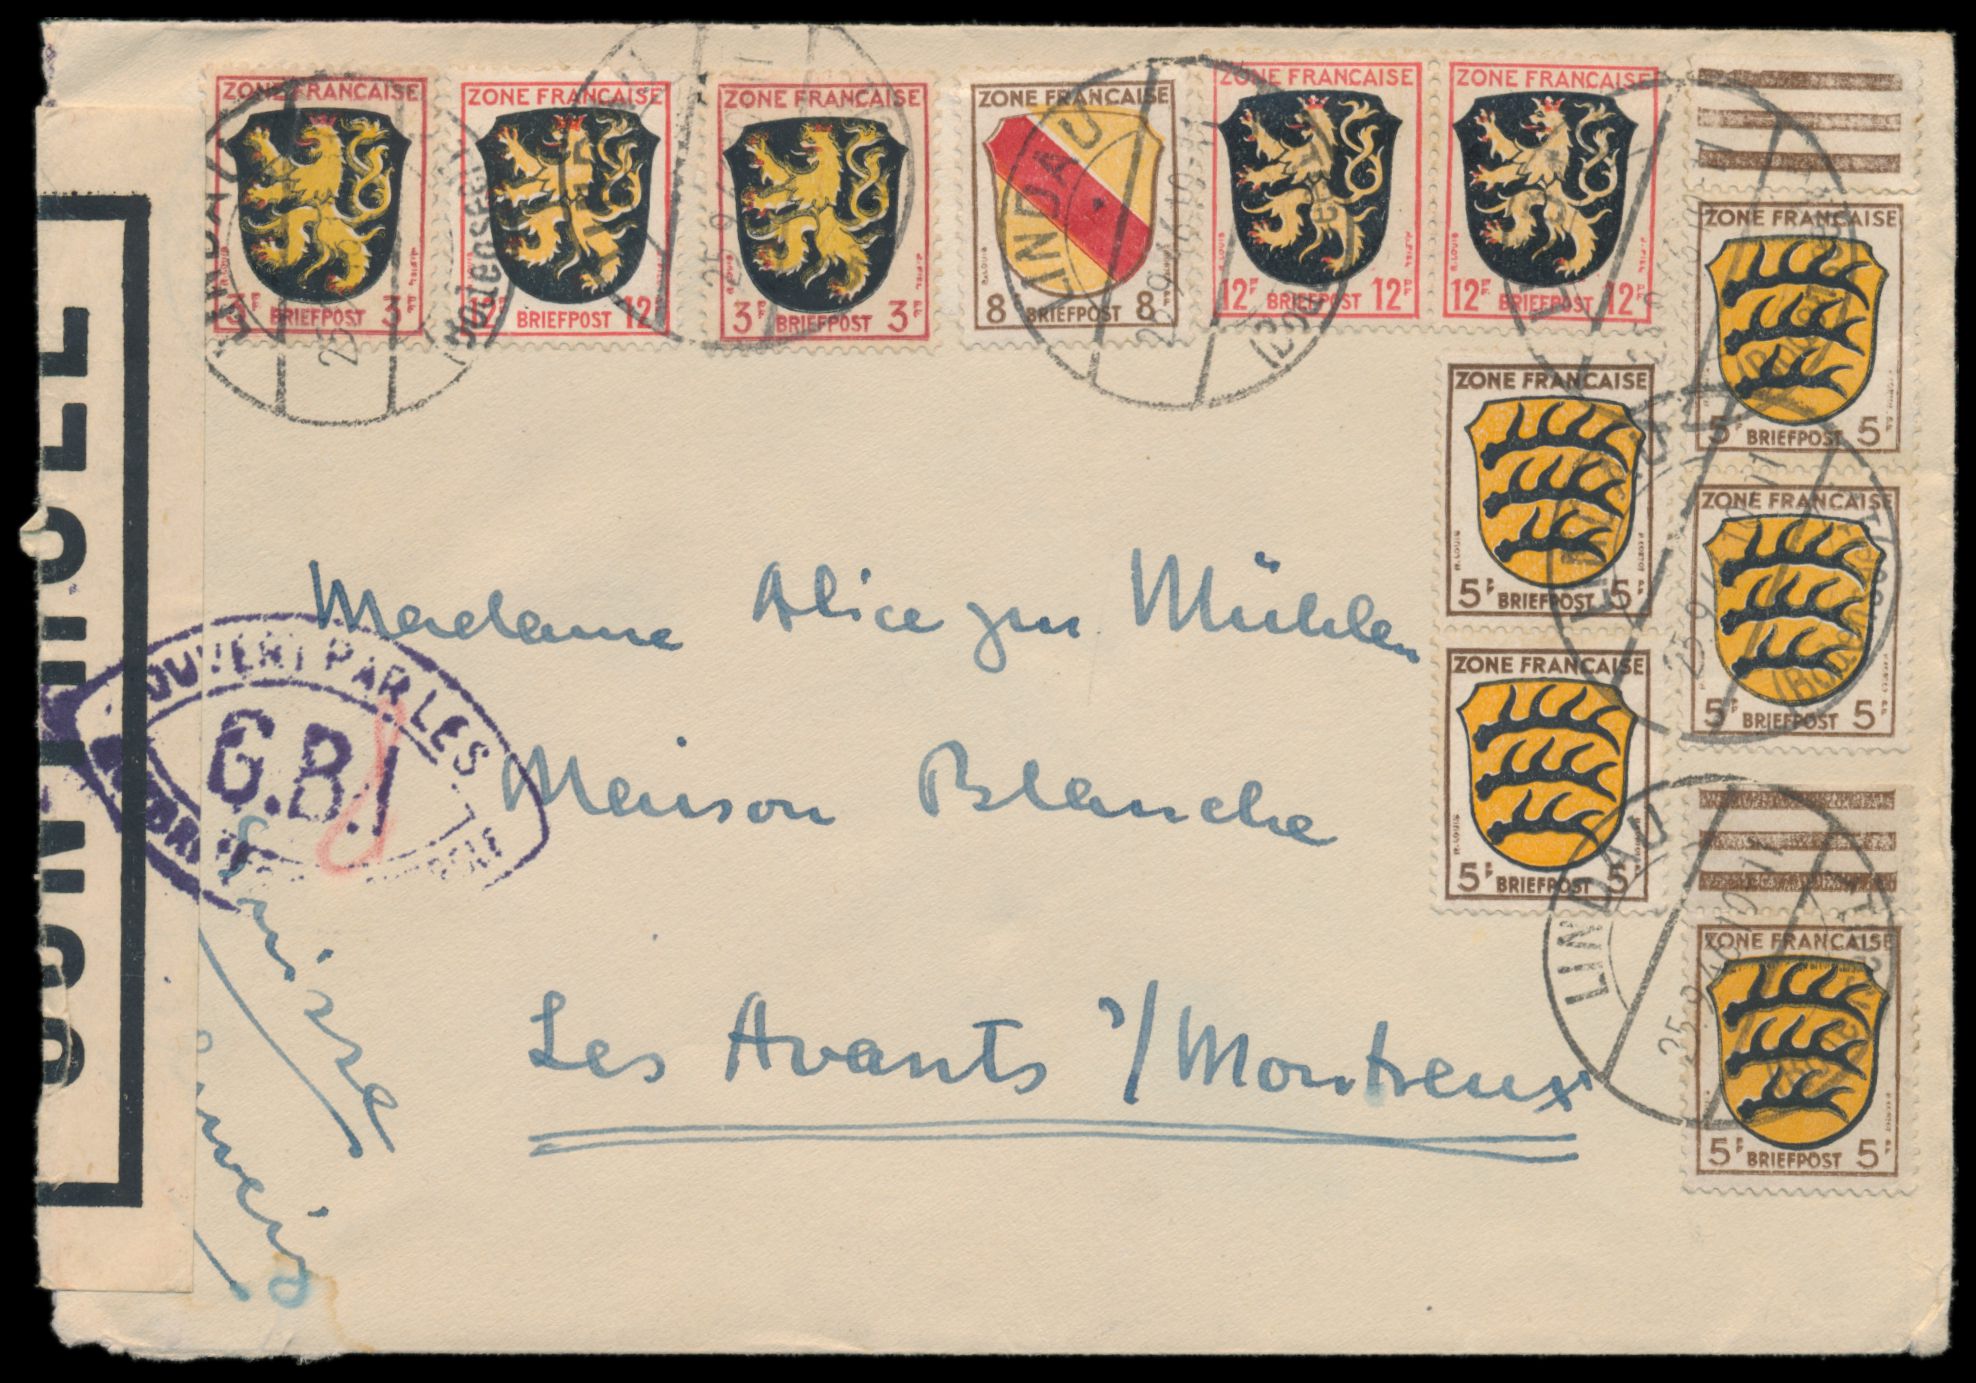 ZONE FRANCAISE
3 Pf BRIEFPOST 3 Pf
ZONE FRANCAISE
12 Pf BRIEFPOST 12
ZONE FRANCAISE
3 Pf BRIEFPOST 3 Pf
ZONE FRANCAISE
8 BRIEFPOST 8
ZONE FRANCAISE
12 Pf BRIEFPOST 12 Pf
ZONE FRANCAISE
12 Pf BRIEFPOST 12 Pf
ZONE FRANCAISE
5 Pf BRIEFPOST 5 Pf
ZONE FRANCAISE
5 Pf BRIEFPOST 5 Pf
ZONE FRANCAISE
5 Pf BRIEFPOST 5
ZONE FRANCAISE
5 Pf BRIEFPOST 5
ZONE FRANCAISE
5 Pf BRIEFPOST 5 Pf
LINDAU
(Bodensee)
LINDAU
25.9.46.10-11
LINDAU
25.9.46.10-11
(Bodensee)
LINDAU
25.9.46.10-11
CONTROLE
OUVERT PAR LES
G.B.
Madame Alice zur Mühlen
Maison Blanche
Les Avants s/Montreux
Suisse
Schweiz